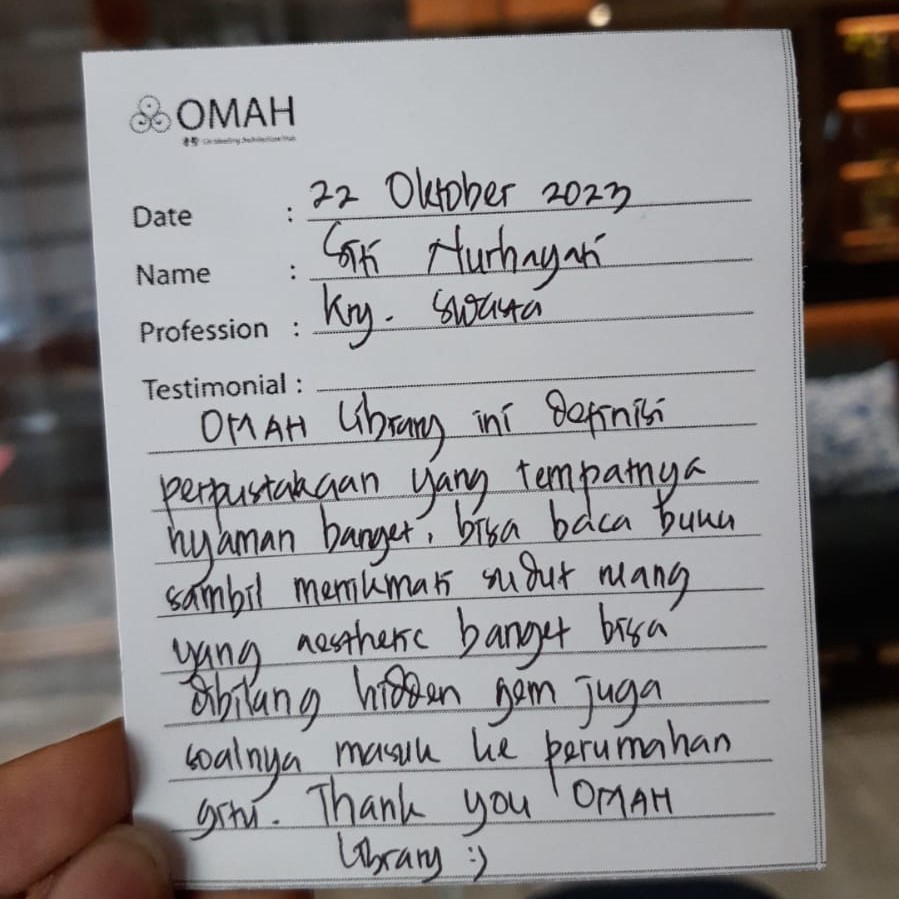 OMAH
Date : 22 Oktober 2023
Name : Siti Nurhayati
Profession : Kry. Swasta
Testimonial :
OMAH Library ini definisi
perpustakaan yang tempatnya
nyaman banget, bisa baca buku
sambil menikmati sudut ruang
yang aesthetic banget bisa
dibilang hidden gem juga
soalnya masuk ke perumahan
gitu. Thank you OMAH
Library :)